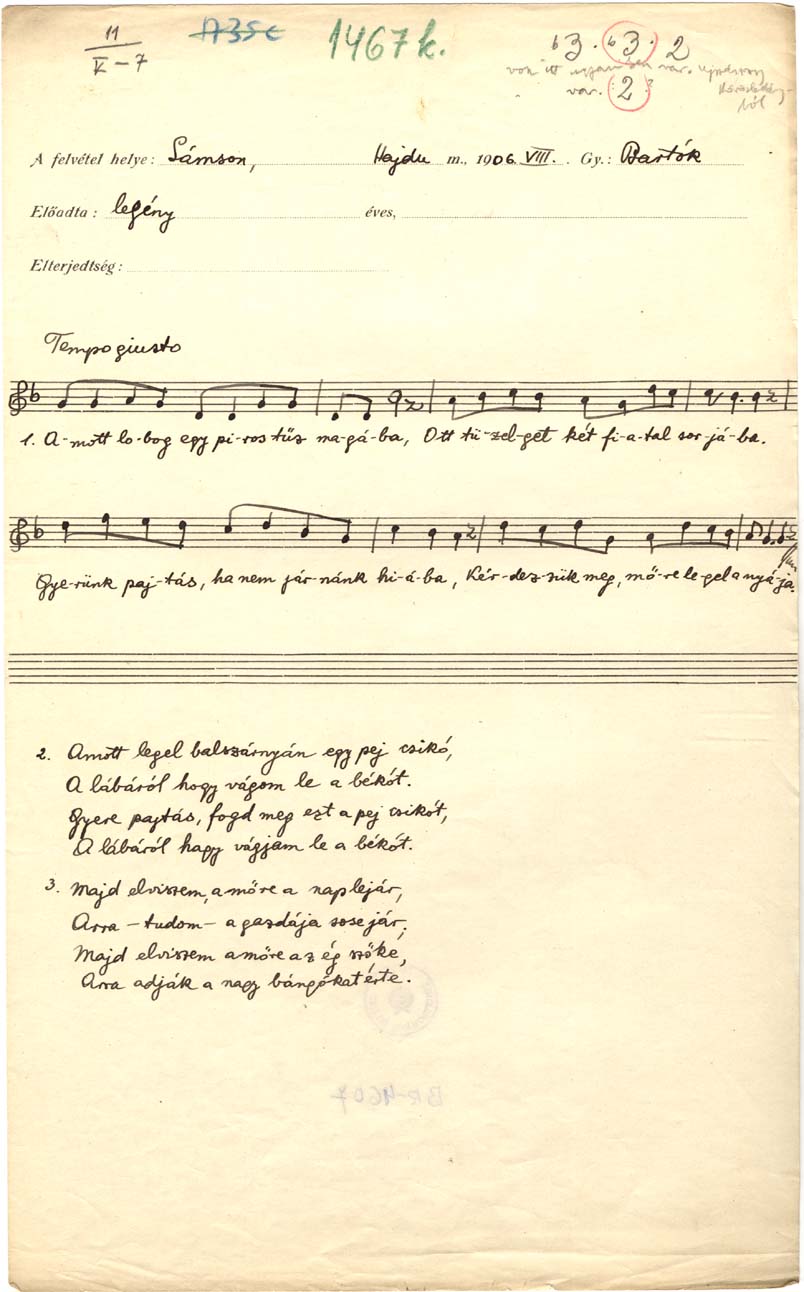 11
V-7
1467 k.
b3. b3. 2
var. 2
A felvétel helye: Sámson, Hajdu m., 1906. VIII. Gy.: Bartók
Előadta: legény éves,
Elterjedtség:
Tempo giusto
1. A-mott lo-bog egy pi-ros tűz ma-gá-ba, Ott tü-zel-get két fi-a-tal sor-já-ba.
Gye-rünk paj-tás, ha nem jár-nánk hi-á-ba, Kér-dez-zük meg, mő-re le-gel a nyá-ja.
2. Amott legel balszárnyán egy pej csikó,
A lábáról hogy vágom le a békót.
Gyere pajtás, fogd meg ezt a pej csikót,
A lábáról hagy vágjam le a békót.
3. Majd elviszem, a mőre a nap lejár,
Arra – tudom – a gazdája sose jár,
Majd elviszem a mőre az ég szőke,
Arra adják a nagy bángókat érte.
BR-4607